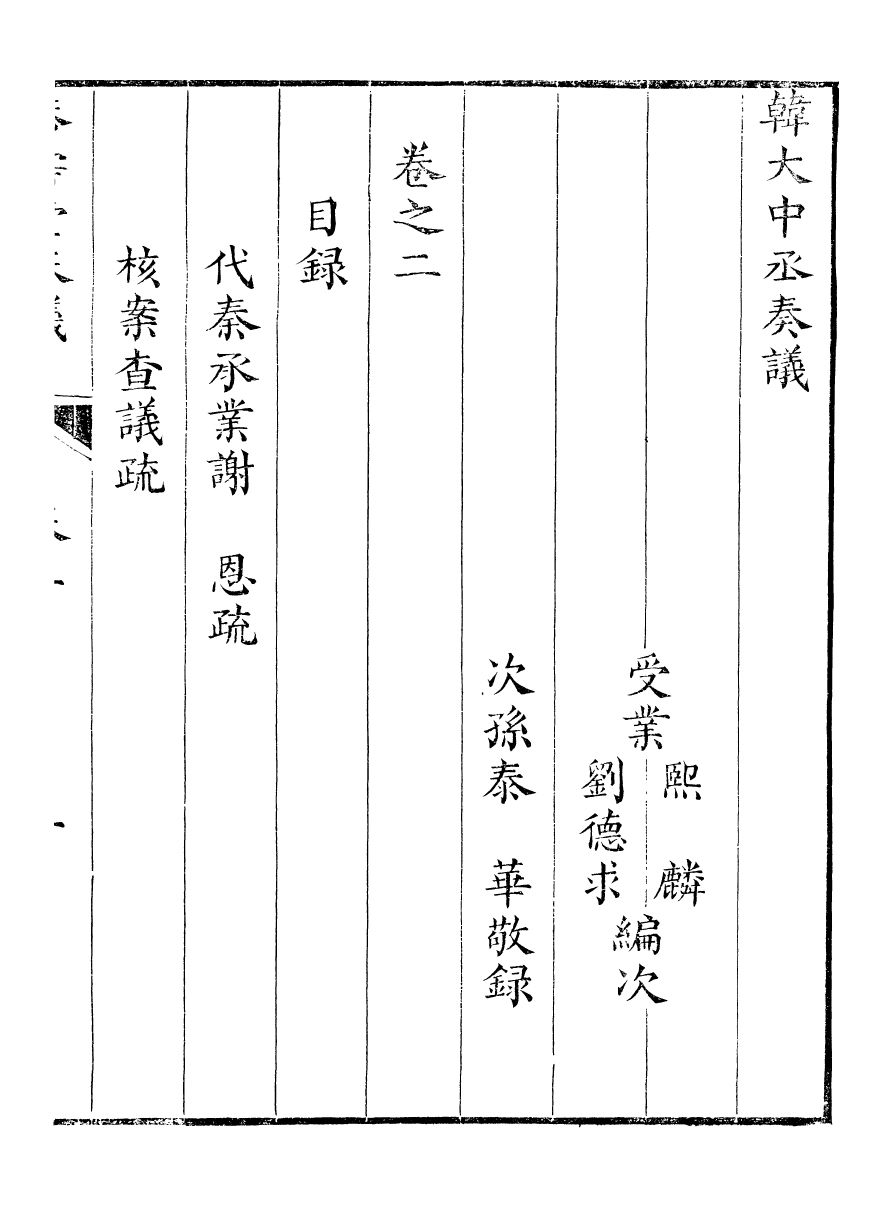 韓大中丞奏議
受業
熙麟
劉德求
編次
次孫泰華敬録
卷之二
目録
代秦承業謝　恩疏
核案查議疏